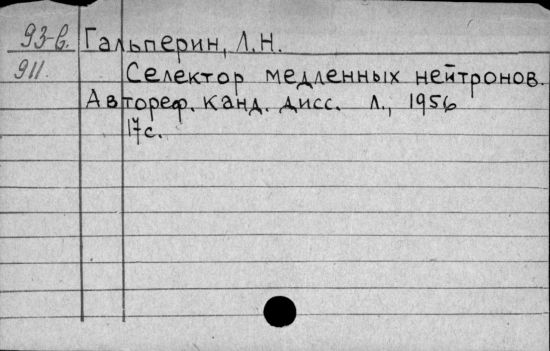 93-в. Гальперин, Л.Н.
911. Селектор медленных нейтронов.
Автореф. канд. дисс. Л., 1956
17с.